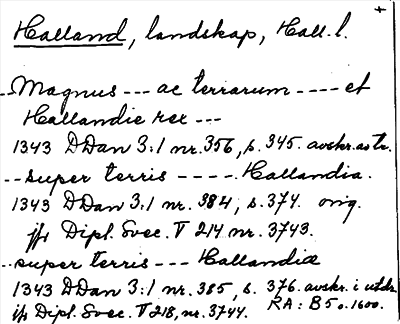 +
Halland, landskap, Hall. l.
..Magnus --- ac terrarum ---- et
Hallandie rex ---
1343 DDan 3:1 nr. 356, s. 345. avskr.
..super terris ---- Hallandia.
1343 DDan 3:1 nr. 384, s. 374. orig.
jfr Dipl. Svec. V 214 nr. 3743.
..super terris --- Hallandia
1343 DDan 3:1 nr. 385, s. 376. avskr. i utdr.
jfr Dipl. Svec. V 218, nr. 3744. RA: B5 o. 1600.